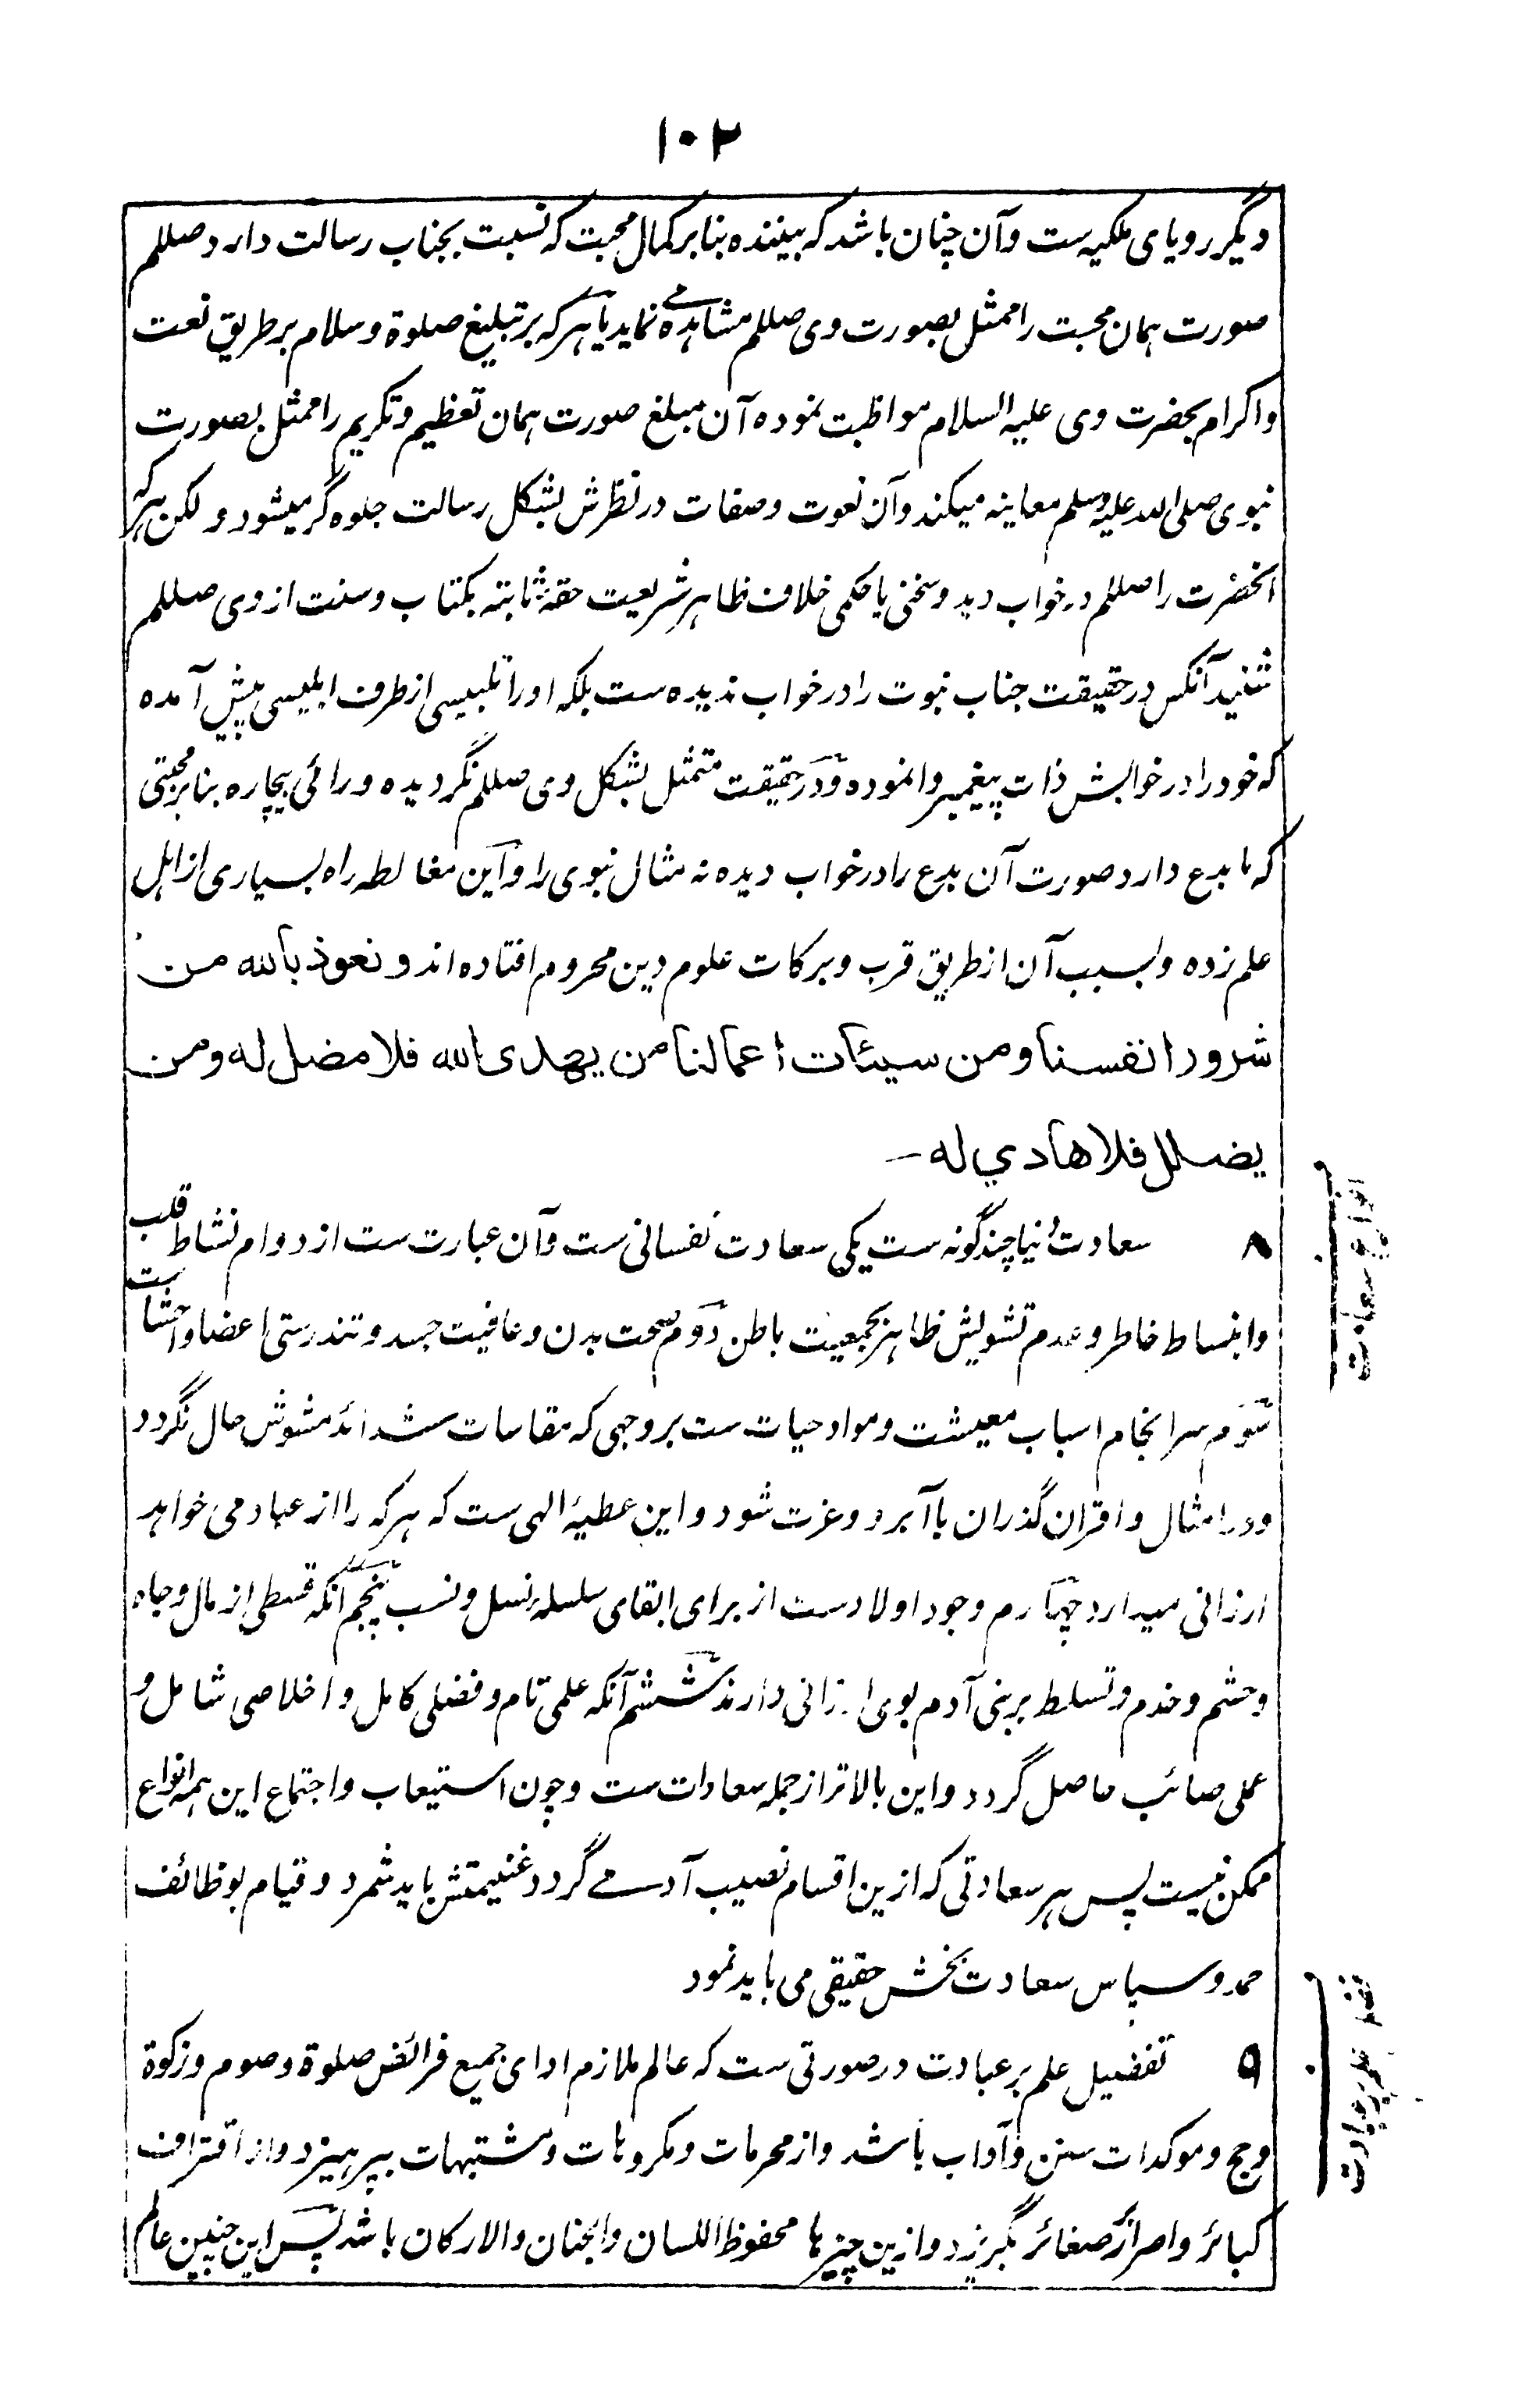 ۱۰۲
دیگر رویای ملکیه ست وآن چنان باشد که بیننده بنا بر کمال محبت که نسبت بجناب رسالت دارد صللم
صورت همان محبت را ممثل بصورت وی صللم مشاهده می نماید یا هر که بر تبلیغ صلوة و سلام بر طریق نعت
واکرام بحضرت وی علیه السلام مواظبت نموده آن مبلغ صورت همان تعظیم وتکریم را ممثل بصورت
نبوی صلی الله علیه وسلم معاینه میکند وآن نعوت وصفات در نظرش بشکل رسالت جلوه گر میشود و لکن هر که
آنحضرت را صللم در خواب دید وسخنی یا حکمی خلاف ظاهر شریعت حقهٔ ثابته بکتاب وسنت از وی صللم
شنید آنکس در حقیقت جناب نبوت را در خواب ندیده ست بلکه او را تلبیسی از طرف ابلیسی پیش آمده
که خود را در خوابش ذات پیغمبر وانموده ودر حقیقت متمثل بشکل وی صللم نگردیده ورائی بیچاره بنا بر محبتی
که با بدع دارد صورت آن بدع را در خواب دیده نه مثال نبوی را واین مغالطه راه بسیاری از اهل
علم زده وبسبب آن از طریق قرب وبرکات علوم دین محروم افتاده اند ونعوذ بالله من
شرور انفسنا ومن سیئات اعمالنا من یهدی الله فلا مضل له ومن
یضلل فلا هادي له —
۸ سعادت دنیا چند گونه ست یکی سعادت نفسانی ست وآن عبارت ست از دوام نشاط قلب
وانبساط خاطر وعدم تشویش ظاهر بجمعیت باطن دوم صحت بدن وعافیت جسد وتندرستی اعضا واحشا ست
سوم سرانجام اسباب معیشت ومواد حیات ست بر وجهی که مقاسات شدائد مشوش حال نگردد
ودر امثال واقران گذران با آبرو وعزت شود واین عطیهٔ الهی ست که هر که را از عباد می خواهد
ارزانی میدارد چهارم وجود اولادست از برای ابقای سلسلهٔ نسل ونسب پنجم آنکه قسطی از مال وجاه
وحشم وخدم وتسلط بر بنی آدم بوی ارزانی دارند ششم آنکه علمی تام وفضلی کامل واخلاصی شامل و
عملی صائب حاصل گردد واین بالاتر از جمله سعادات ست وچون استیعاب واجتماع این همه انواع
ممکن نیست پس هر سعادتی که ازین اقسام نصیب آدمے گردد غنیمتش باید شمرد وقیام بوظائف
حمد وسپاس سعادت بخش حقیقی می باید نمود
۹ تفضیل علم بر عبادت در صورتی ست که عالم ملازم ادای جمیع فرائض صلوة وصوم وزکوة
وحج وموکدات سنن وآداب باشد واز محرمات ومکروهات ومشتبهات بپرهیزد واز اقتراف
کبائر واصرار بر صغائر بگریزد وازین چیزها محفوظ اللسان والجنان والارکان باشد پس این چنین عالم
تفضیل علم بر عبادت